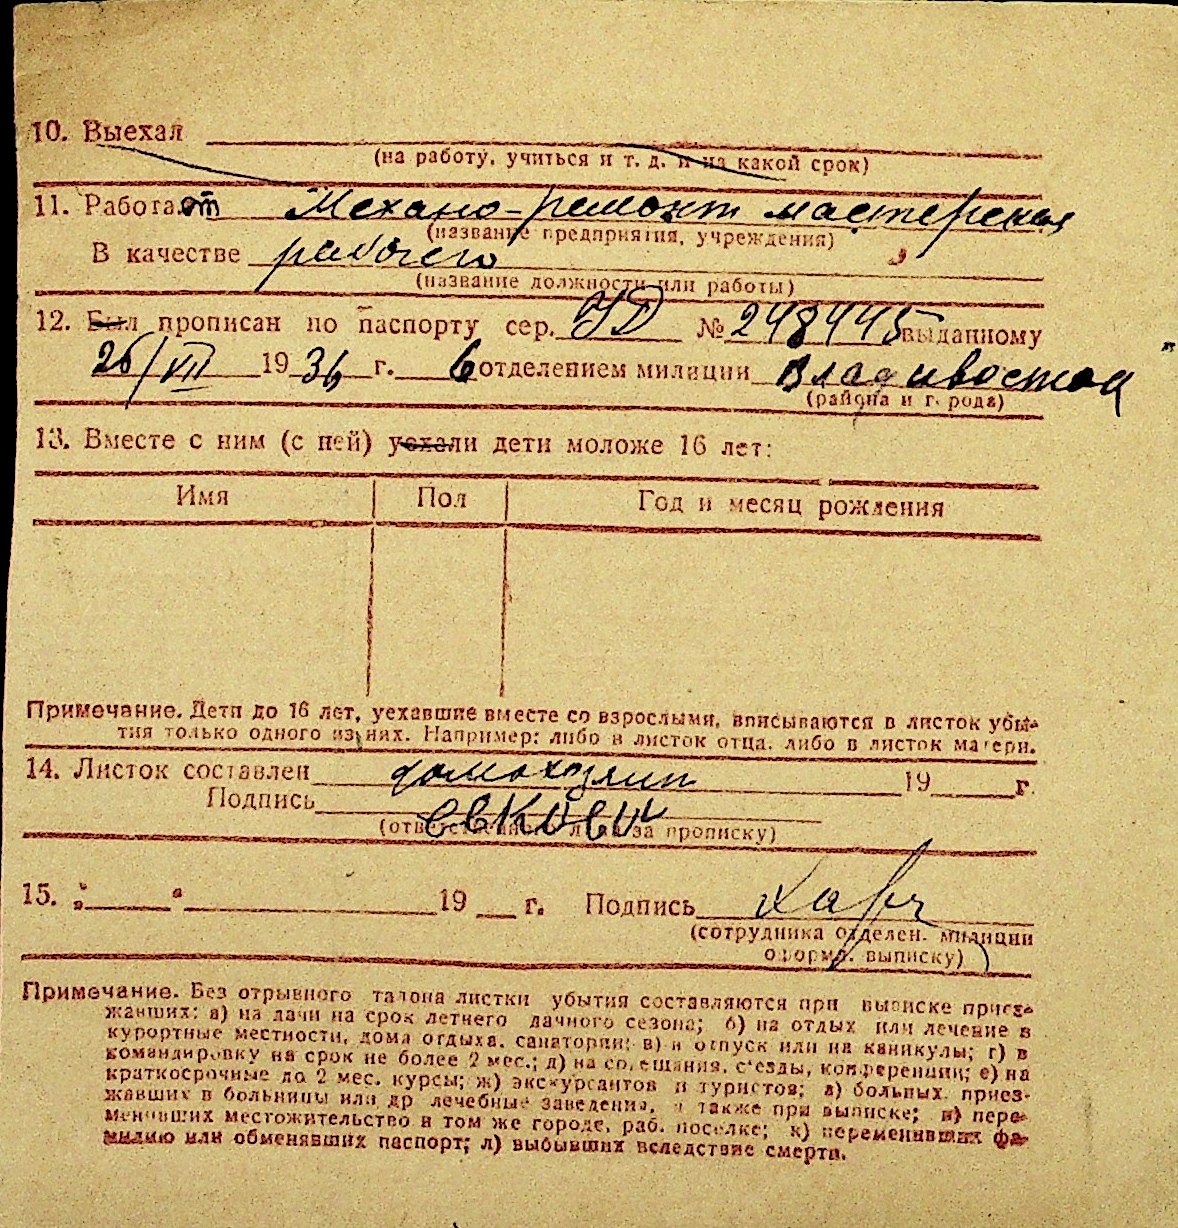 10. Выехал
(на работу, учиться и т. д. и на какой срок)
11. Работает Механо-ремонт мастерская
(название предприятия, учреждения)
В качестве рабочего
(название должности или работы)
12. Был прописан по паспорту сер. УД № 248445 выданному
26/VII 1936 г. 6 отделением милиции Владивосток
(района и города)
13. Вместе с ним (с ней) уехали дети моложе 16 лет:
Имя Пол Год и месяц рождения
Примечание. Дети до 16 лет, уехавшие вместе со взрослыми, вписываются в листок убы-
тия только одного из них. Например: либо в листок отца, либо в листок матери.
14. Листок составлен домохозяин 19 г.
Подпись
(ответственного лица за прописку)
15. „ “ 19 г. Подпись
(сотрудника отделен. милиции
оформ. выписку)
Примечание. Без отрывного талона листки убытия составляются при выписке приез-
жавших: а) на дачи на срок летнего дачного сезона; б) на отдых или лечение в
курортные местности, дома отдыха, санатории; в) в отпуск или на каникулы; г) в
командировку на срок не более 2 мес.; д) на совещания, съезды, конференции; е) на
краткосрочные до 2 мес. курсы; ж) экскурсантов и туристов; з) больных, приез-
жавших в больницы или др лечебные заведения, а также при выписке; и) пере-
менивших местожительство в том же городе, раб. поселке; к) переменивших фа-
милию или обменявших паспорт; л) выбывших вследствие смерти.